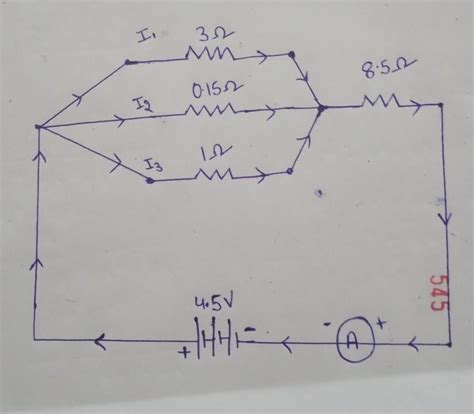 I₁ 3Ω
I₂ 0.15Ω
I₃ 1Ω
8.5Ω
545
4.5V
+ -
- A +